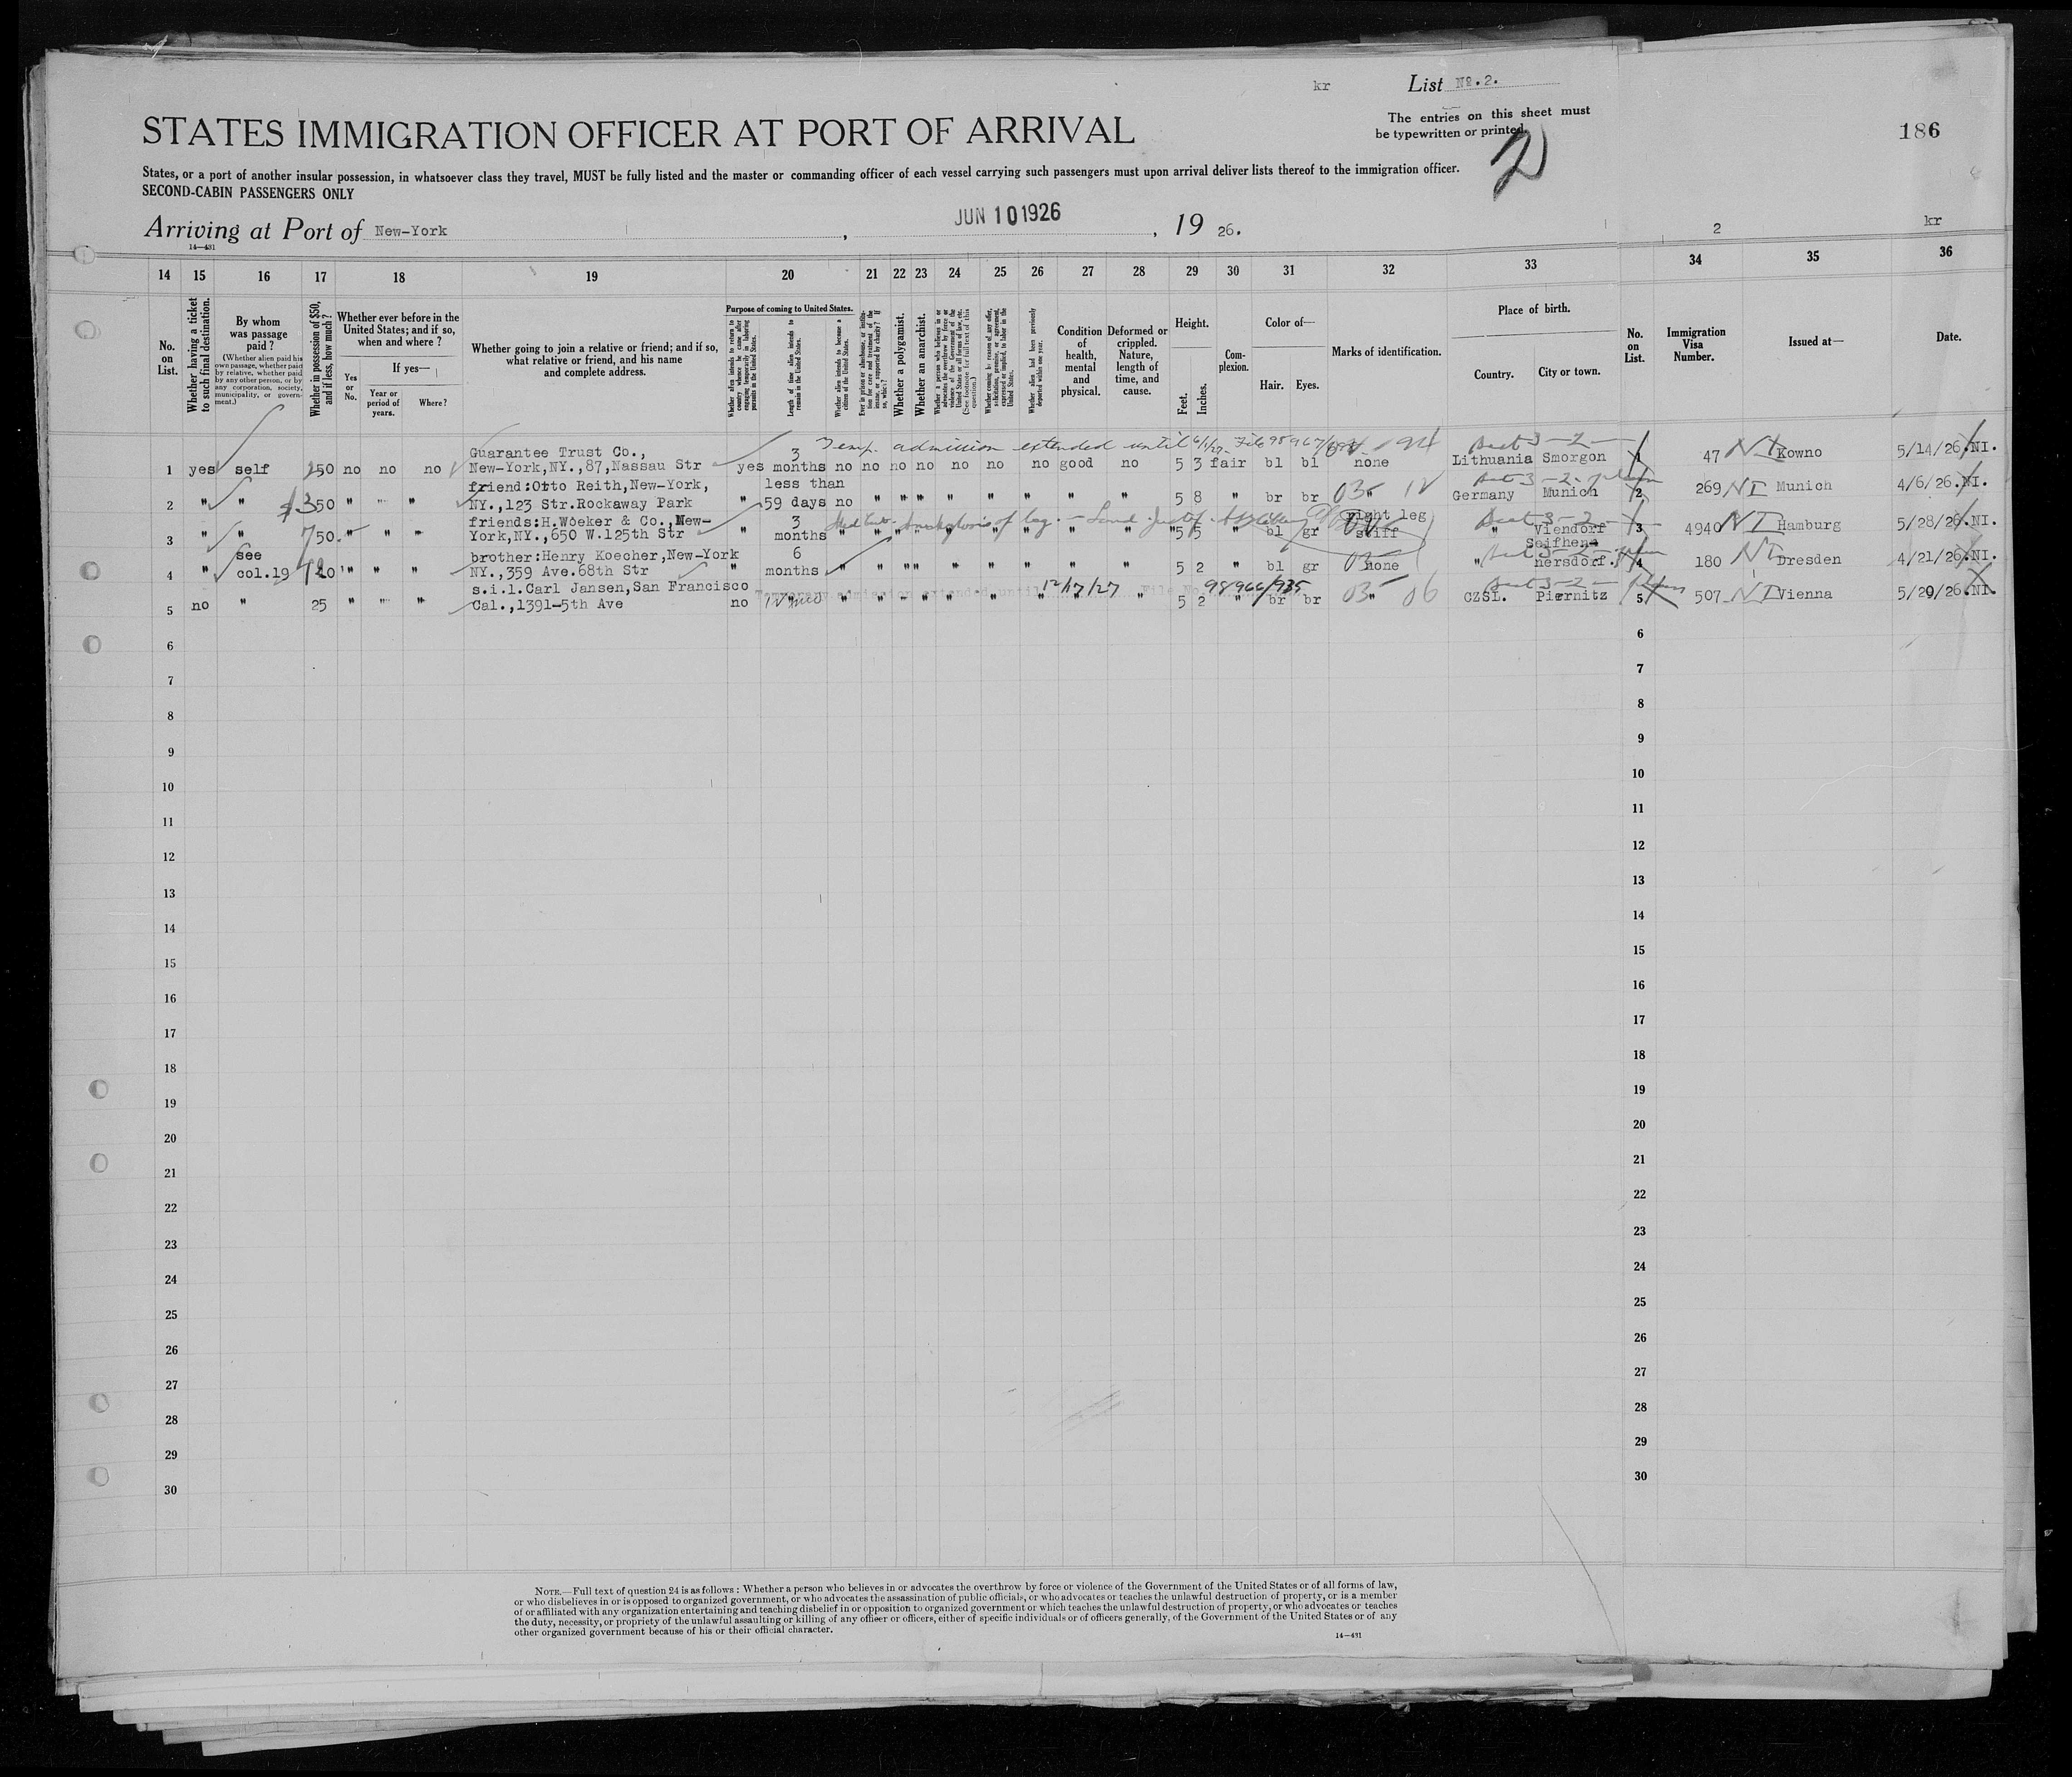 kr
List Nº.2.
The entries on this sheet must
be typewritten or printed.
2
186
STATES IMMIGRATION OFFICER AT PORT OF ARRIVAL
States, or a port of another insular possession, in whatsoever class they travel, MUST be fully listed and the master or commanding officer of each vessel carrying such passengers must upon arrival deliver lists thereof to the immigration officer.
SECOND-CABIN PASSENGERS ONLY
Arriving at Port of New-York, JUN 10 1926, 19 26.
2
kr
14—431
14 15 16 17 18 19 20 21 22 23 24 25 26 27 28 29 30 31 32 33 34 35 36
No. on List.
Whether having a ticket to such final destination.
By whom was passage paid?
(Whether alien paid his own passage, whether paid by relative, whether paid by any other person, or by any corporation, society, municipality, or government.)
Whether in possession of $50, and if less, how much?
Whether ever before in the United States; and if so, when and where?
Yes or No.
If yes—
Year or period of years.
Where?
Whether going to join a relative or friend; and if so, what relative or friend, and his name and complete address.
Purpose of coming to United States.
Whether alien intends to return to country whence he came after engaging temporarily in laboring pursuits in the United States.
Length of time alien intends to remain in the United States.
Whether alien intends to become a citizen of the United States.
Ever in prison or almshouse, or institution for care and treatment of the insane, or supported by charity? If so, which?
Whether a polygamist.
Whether an anarchist.
Whether a person who believes in or advocates the overthrow by force or violence of the Government of the United States or all forms of law, etc. (See footnote for full text of this question.)
Whether coming by reason of any offer, solicitation, promise, or agreement, expressed or implied, to labor in the United States.
Whether alien had been previously deported within one year.
Condition of health, mental and physical.
Deformed or crippled. Nature, length of time, and cause.
Height.
Feet. Inches.
Complexion.
Color of—
Hair. Eyes.
Marks of identification.
Place of birth.
Country. City or town.
No. on List.
Immigration Visa Number.
Issued at—
Date.
Temp. admission extended until 6/1/27. File 98967/
Guarantee Trust Co., 3
1 yes self 50 no no no New-York,NY.,87,Nassau Str yes months no no no no no no no good no 5 3 fair bl bl none Lithuania Smorgon 1 47 NI Kowno 5/14/26.NI.
friend:Otto Reith,New-York, less than
2 " " $350 " " " NY.,123 Str.Rockaway Park " 59 days no " " " " " " " " 5 8 " br br " Germany Munich 2 269 NI Munich 4/6/26.NI.
friends:H.Woeker & Co.,New- 3 right leg
3 " " 750 " " " York,NY.,650 W.125th Str " months " " " " " " " " " 5 5 " bl gr stiff " Viendorf 3 4940 NI Hamburg 5/28/26.NI.
see brother:Henry Koecher,New-York 6 Seifhen=
4 " col.19 120 " " " NY.,359 Ave.68th Str " months " " " " " " " " " 5 2 " bl gr none " nersdorf. 4 180 NI Dresden 4/21/26.NI.
s.i.l.Carl Jansen,San Francisco Temporary admission extended until 12/17/27 File No. 98966/935
5 no " 25 " " " Cal.,1391-5th Ave no " " " " " " " " " 5 2 " br br 03 " 06 CZSL. Piernitz 5 507 NI Vienna 5/20/26.NI.
6 6
7 7
8 8
9 9
10 10
11 11
12 12
13 13
14 14
15 15
16 16
17 17
18 18
19 19
20 20
21 21
22 22
23 23
24 24
25 25
26 26
27 27
28 28
29 29
30 30
NOTE.—Full text of question 24 is as follows: Whether a person who believes in or advocates the overthrow by force or violence of the Government of the United States or of all forms of law,
or who disbelieves in or is opposed to organized government, or who advocates the assassination of public officials, or who advocates or teaches the unlawful destruction of property, or is a member
of or affiliated with any organization entertaining and teaching disbelief in or opposition to organized government or which teaches the unlawful destruction of property, or who advocates or teaches
the duty, necessity, or propriety of the unlawful assaulting or killing of any officer or officers, either of specific individuals or of officers generally, of the Government of the United States or of any
other organized government because of his or their official character.
14—431